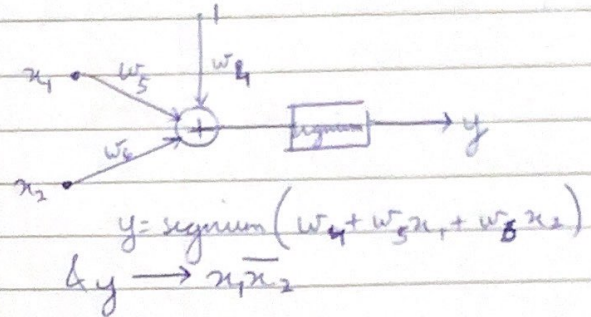 1
x₁ w₅ w₄
+ signum y
w₆
x₂
y = segnium (w₄ + w₅x₁ + w₆x₂)
& y → x₁x̅₂